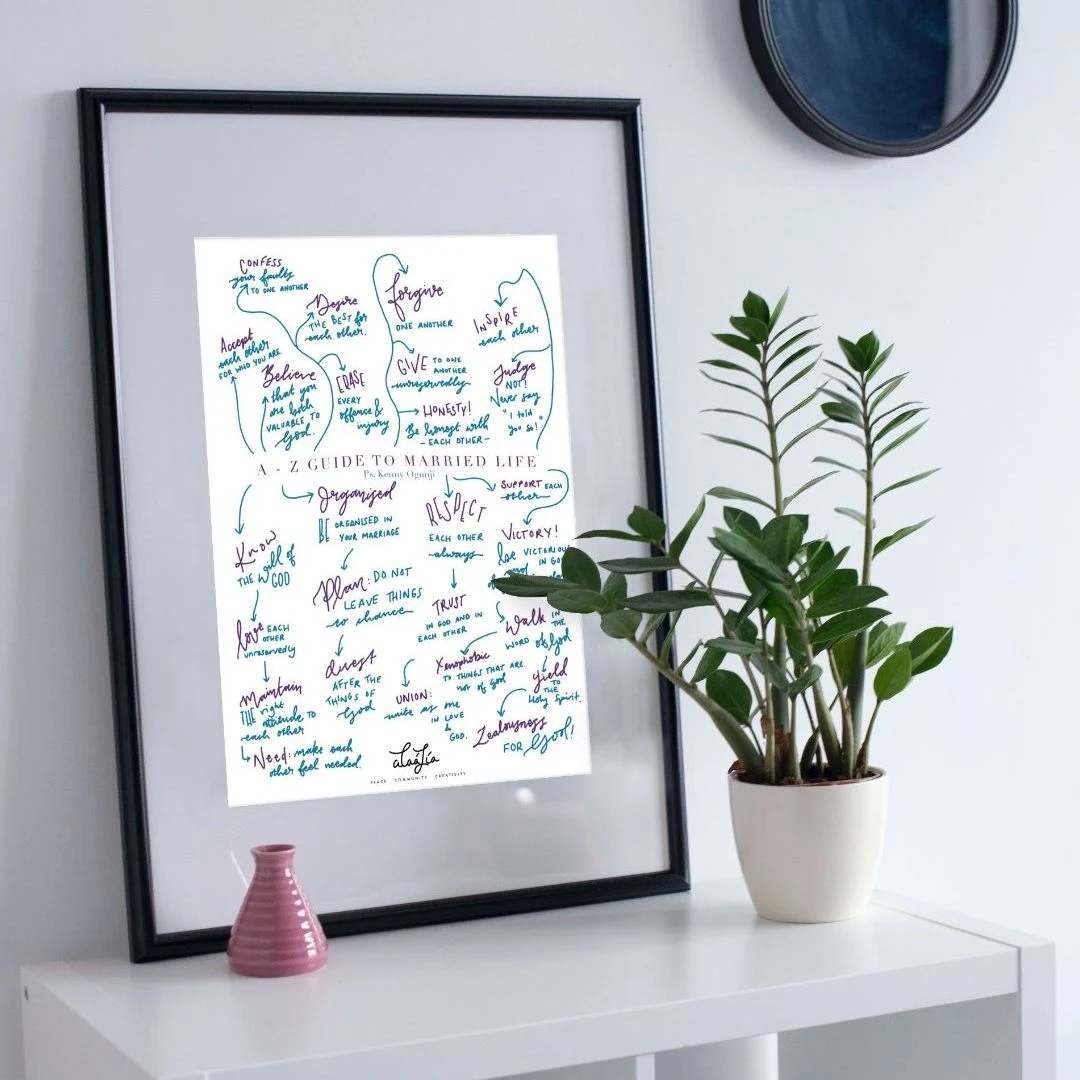 CONFESS
your faults
TO ONE ANOTHER
Desire
THE BEST for
each other.
Accept
each other
FOR WHO YOU ARE
Believe
that you
are both
VALUABLE TO
God.
ERASE
EVERY
offence &
injury
forgive
ONE ANOTHER
GIVE TO ONE
ANOTHER
unreservedly
HONESTY!
Be honest with
- EACH OTHER -
INSPIRE
each other
Judge
NOT!
Never say
"I told
you so!"
A - Z GUIDE TO MARRIED LIFE
Ps. Kenny Ogunji
Know
THE will of
GOD
love EACH
OTHER
unreservedly
Maintain
THE right
attitude TO
each other
Need: make each
other feel needed.
Organised
BE ORGANISED IN
YOUR MARRIAGE
Plan: DO NOT
LEAVE THINGS
to chance
Quest
AFTER THE
THINGS OF
God
RESPECT
EACH OTHER
always
SUPPORT EACH
other
TRUST
IN GOD AND IN
EACH OTHER
UNION:
unite as one
IN LOVE
&
GOD.
VICTORY!
be VICTORIOUS
IN GOD
Walk IN
THE
WORD of God
Xenophobic
TO THINGS THAT ARE
not of God
yield
TO
THE
Holy Spirit.
Zealousness
FOR God!
alaáfía
PEACE . COMMUNITY . CREATIVITY